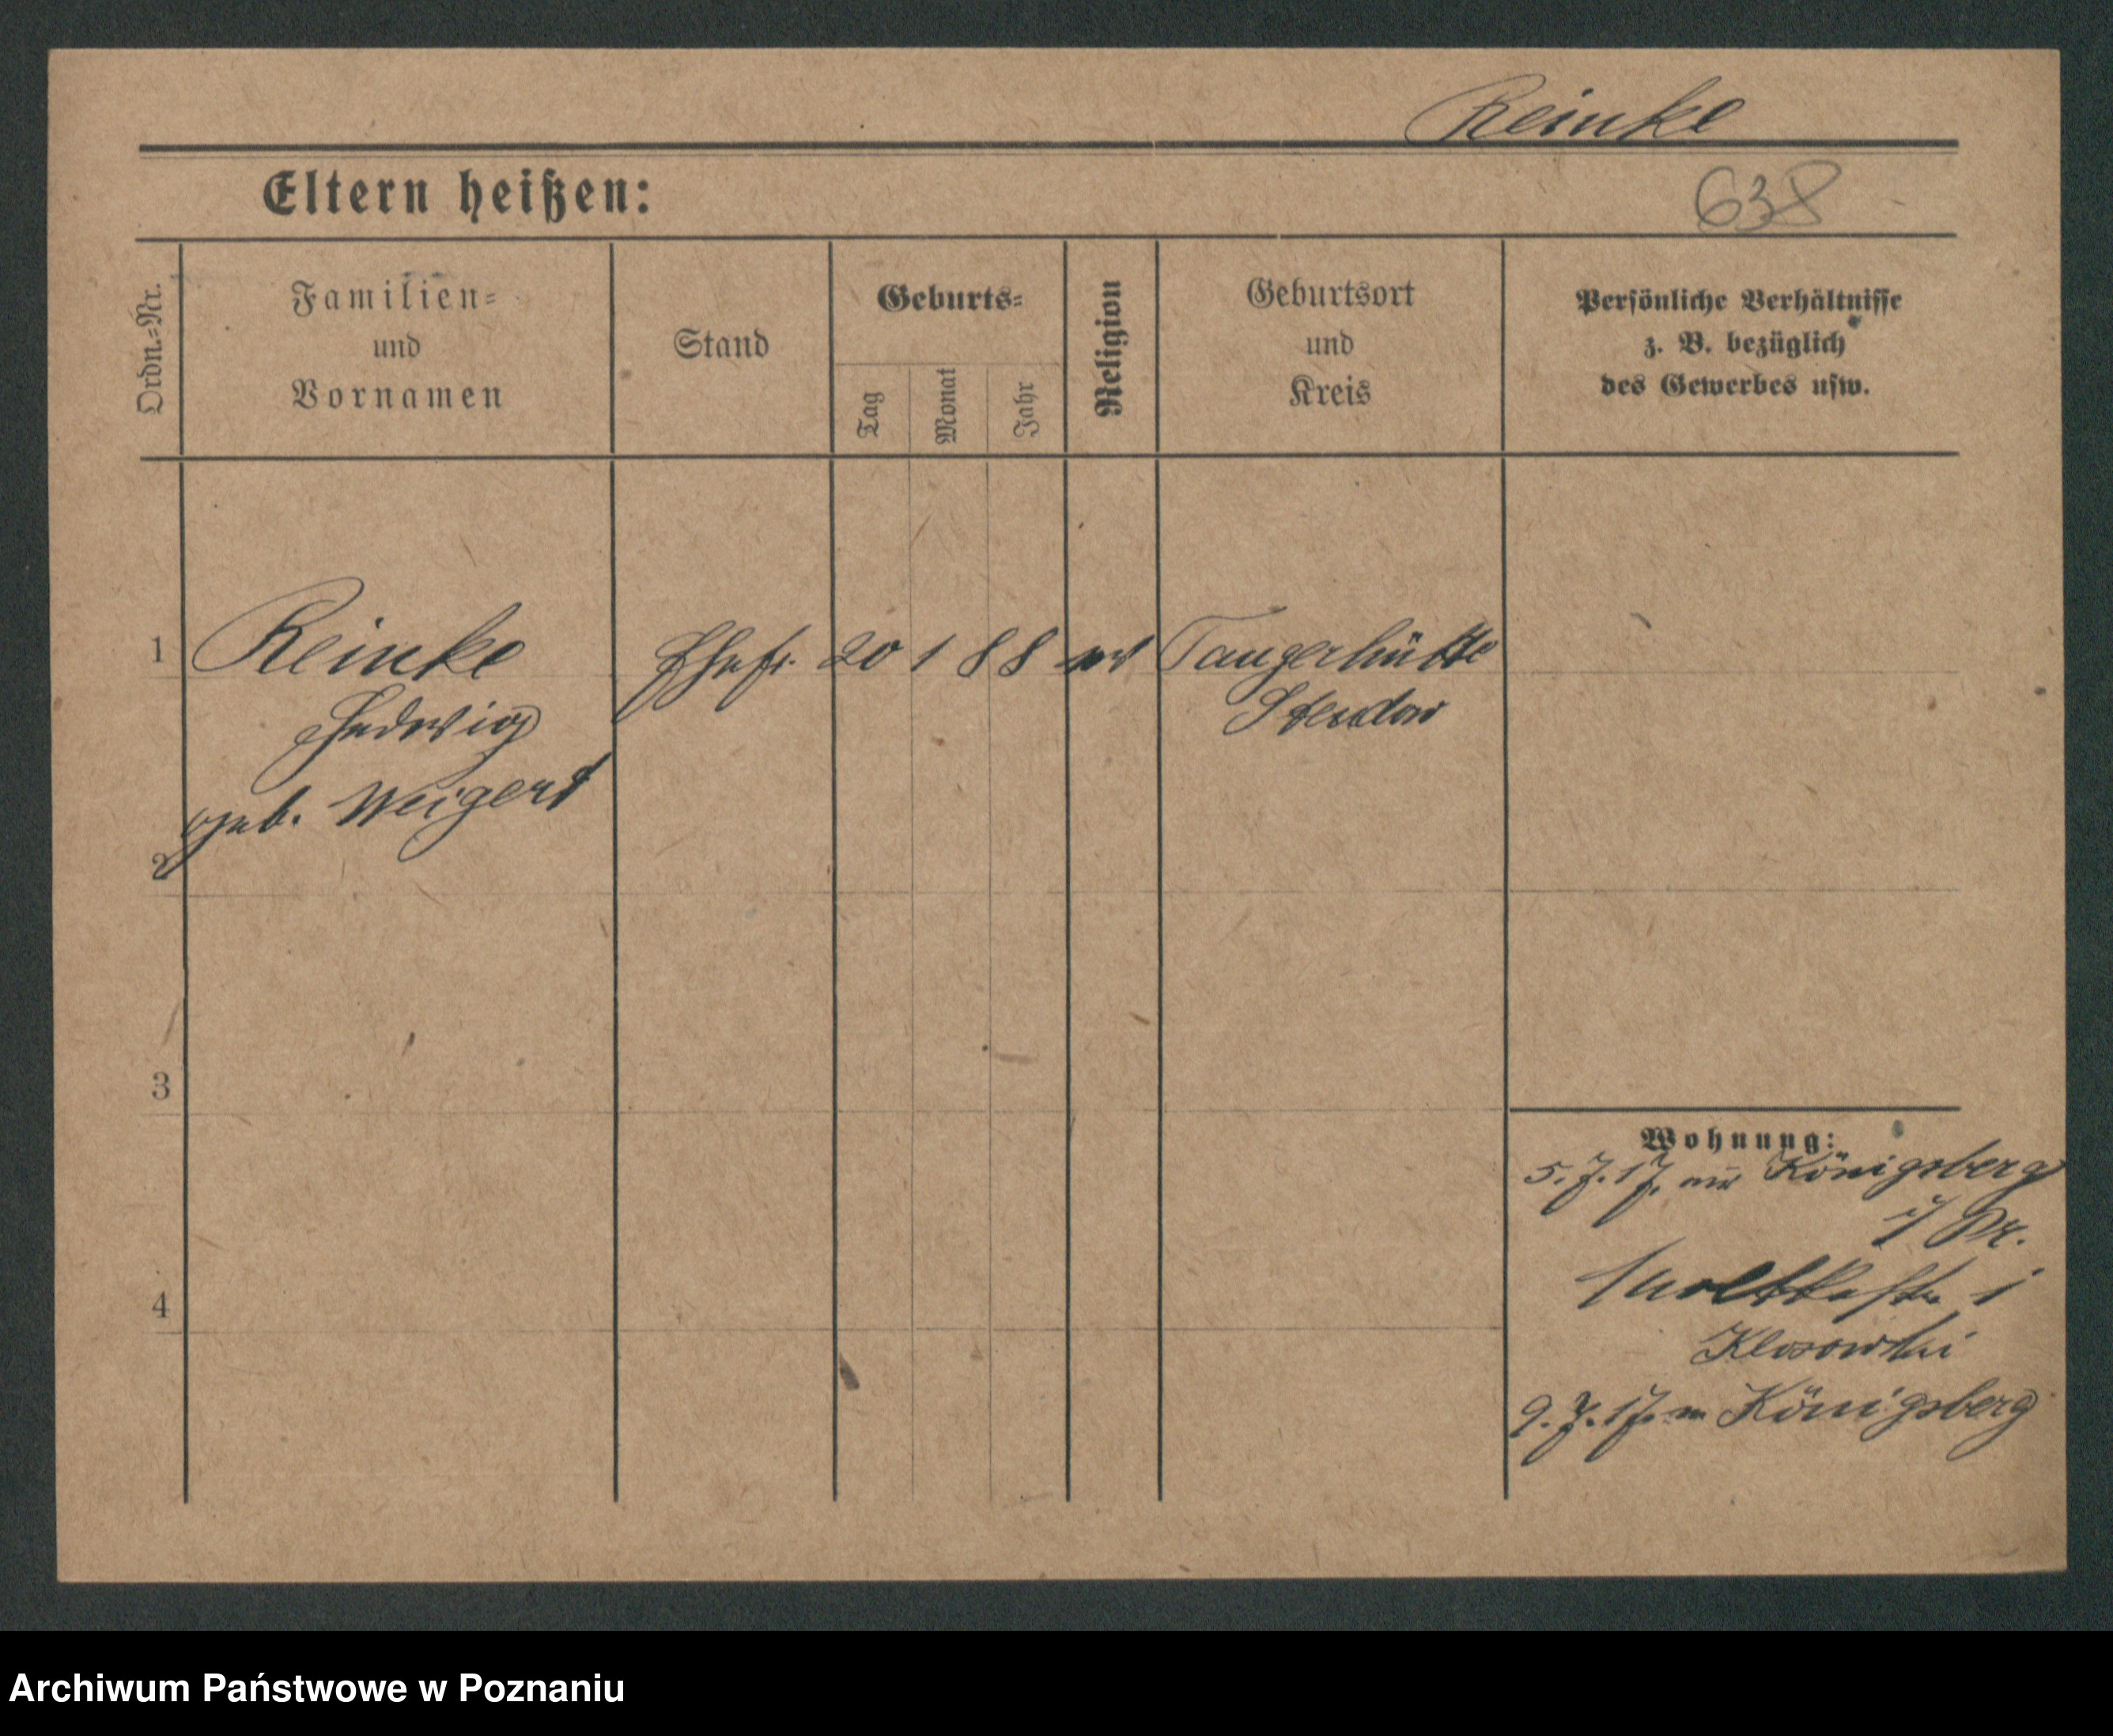 Reinke
Eltern heißen:
638
Ordn.-Nr.
Familien-
und
Vornamen
Stand
Geburts-
Tag
Monat
Jahr
Religion
Geburtsort
und
Kreis
Persönliche Verhältnisse
z. B. bezüglich
des Gewerbes usw.
1
Reinke
Hedwig
geb. Weigert
Ehefr.
20
1
88
ev
Tangerhütte
Stendal
2
3
4
Wohnung:
5.7.17. aus Königsberg
i/Pr.
Moltkestr. 1
Klosowski
9.7.17. n Königsberg
Archiwum Państwowe w Poznaniu